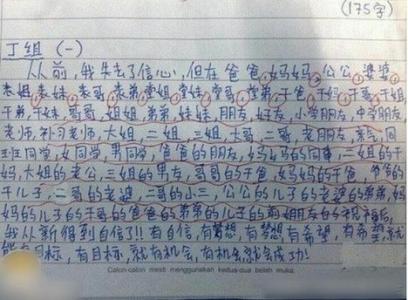 (175字)
丁组 (一)
从前,我失去了信心,但在爸爸,妈妈,公公,婆婆
表姐,表妹,表哥,表弟,堂姐,堂妹,堂哥,堂弟,干爸,干妈,干哥,干姐,
干弟,干妹,哥哥,姐姐,弟弟,妹妹,朋友,好友,小学朋友,中学朋友
老师,补习老师,大姐,二姐,三姐,大哥,二哥,老朋友,新
班同学,女同学,男同学,爸爸的朋友,妈妈的同事,二姐的干
妈,大姐的老公,三姐的男友,哥哥的干爸,妈妈的干爸,爸爸的
干儿子,二哥的老婆,二哥的小三,公公的儿子的老婆的弟弟,妈
妈的儿子的干哥的爸爸的弟弟的儿子的前姐朋友的祝福后,
我从新得到自信!!有自信,有梦想,有梦想有希望,有希望就
能有目标,有目标,就有机会,有机会就会成功!
Calon-calon mesti menggunakan kedua-dua belah muka.